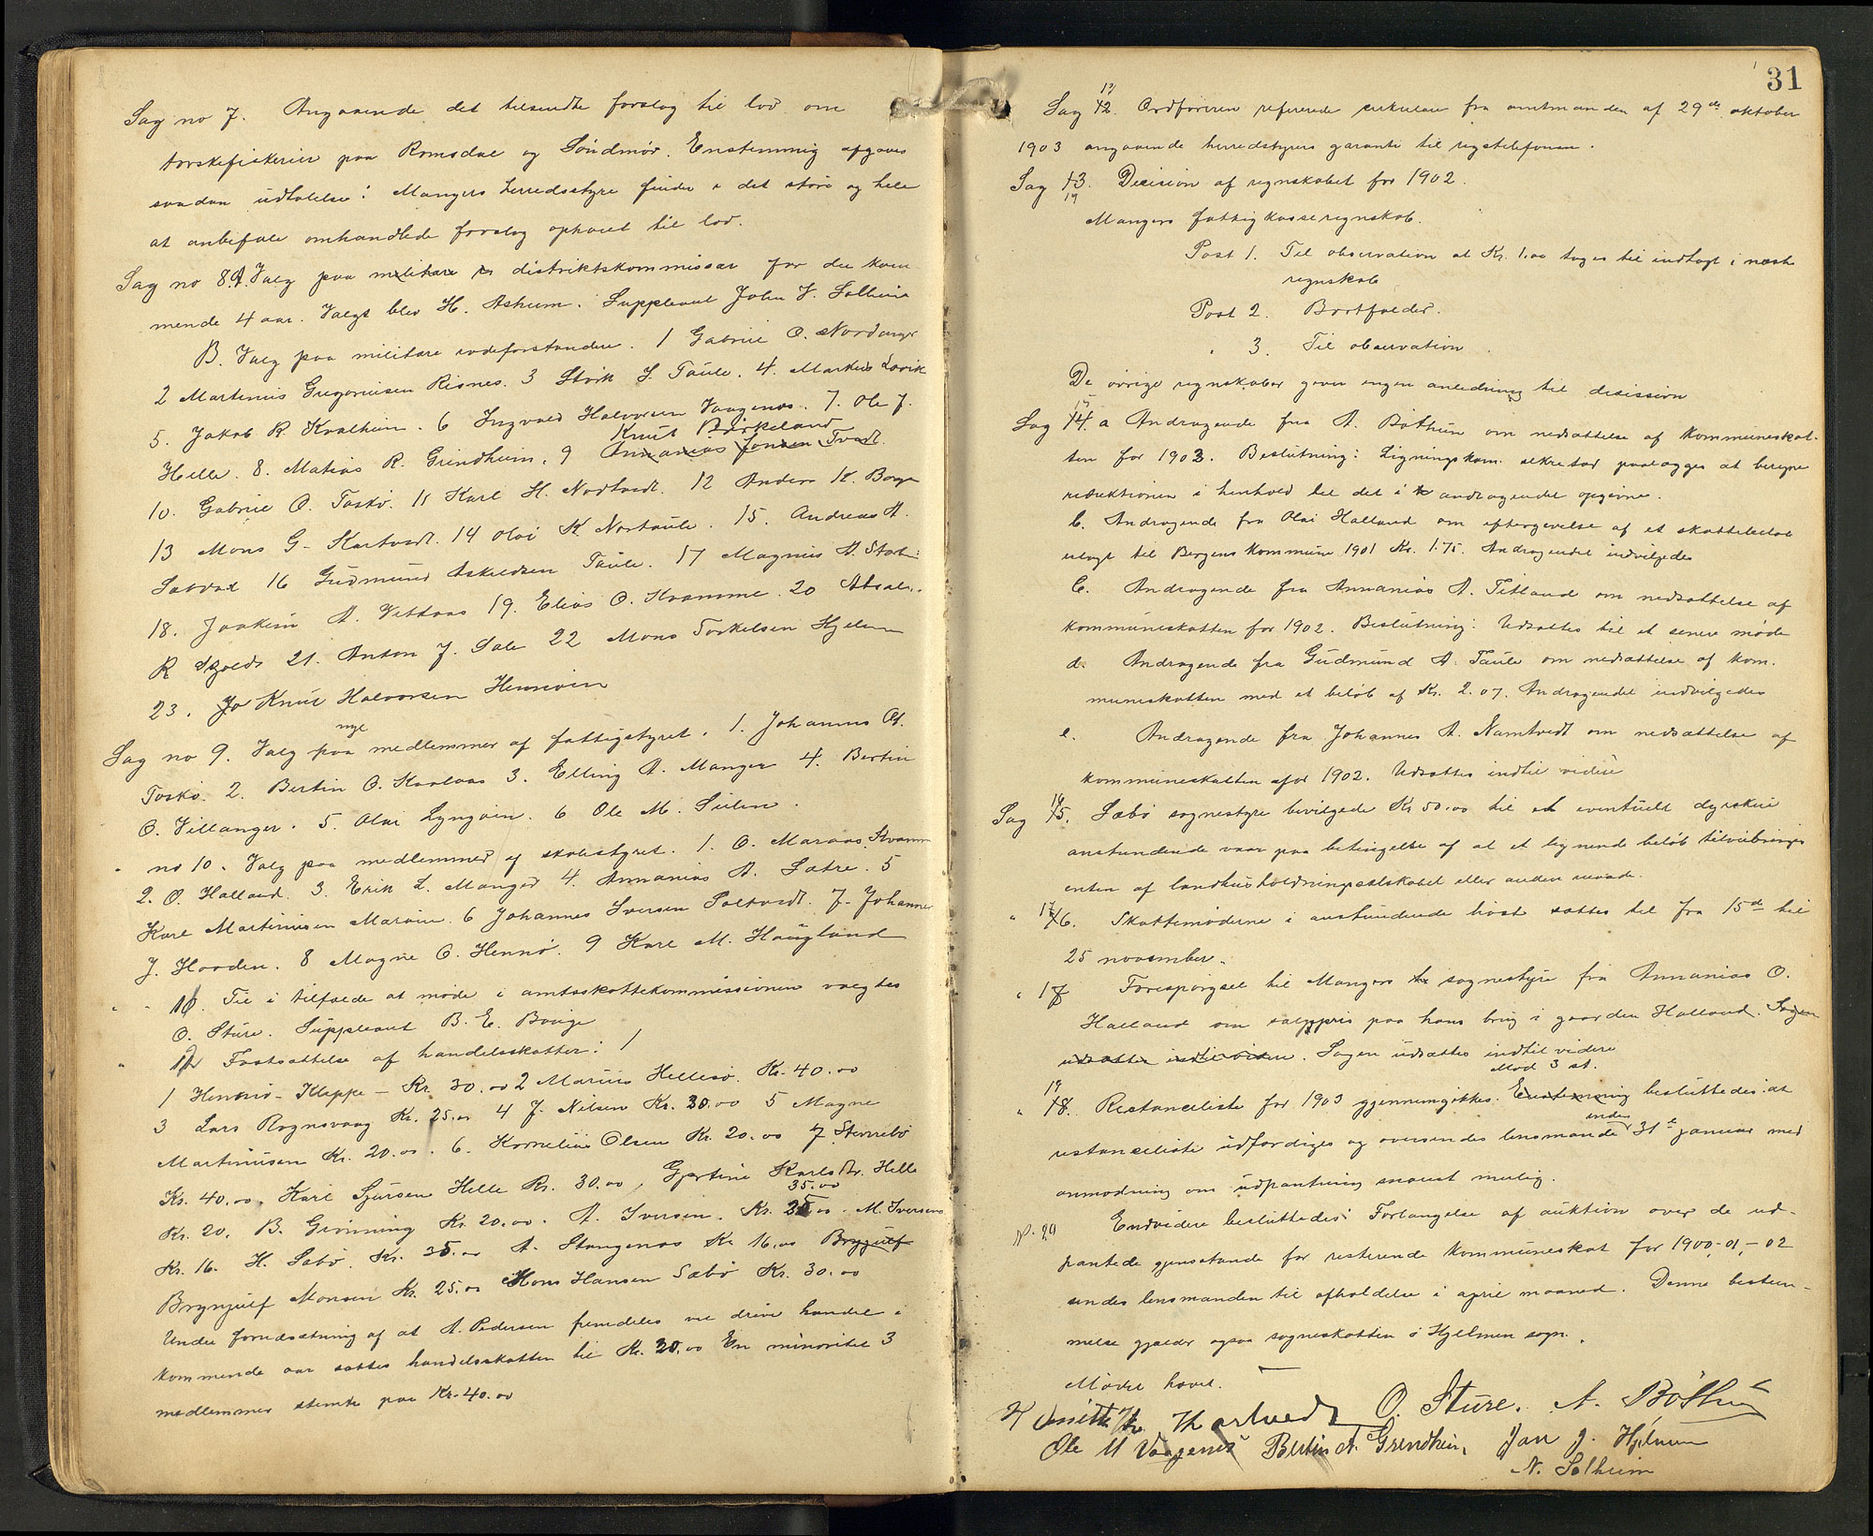 Sag no 7. Angaaende det tilsendte forslag til lov om
torskefiskerier paa Romsdal og Söndmör. Enstemmig afgaves
saadan udtalelse: Mangers herredsstyre finder i det store og hele
at anbefale omhandlede forslag ophöiet til lov.
Sag no 8. A. Valg paa militære distriktskommissær for de kom
mende 4 aar. Valgt blev H. Askum. Suppleant John V. Solheim
B. Valg paa militære rodeforstandere. 1 Gabriel O. Nordanger
2 Martinus Gregoriusen Risnes. 3 Störk S. Taule. 4. Markus Lavik
5. Jakob R. Kvalheim. 6 Ingvald Halvorsen Vaagenes. 7. Ole J.
Knut Birkeland
Helle. 8. Matias R. Grindheim. 9 Annanias Jonsen Tvedt.
10. Gabriel O. Toskö. 11 Karl H. Nordtvedt. 12 Anders K. Boge
13 Mons G. Kartvedt. 14 Olai K. Nortaule. 15. Andreas A.
16 Gudmund Askildsen Taule. 17 Magnus A.
18. Joakim A. Vetaas 19. Elias O. Kvamme. 20
R 21. Anton J. Sæle 22 Mons Torkelsen Hjelmen
23. Knut Halvorsen Hennöen
nye
Sag no 9. Valg paa medlemmer af fattigstyret. 1. Johannes
Toskö. 2. Bertin O. 3. Elling A. Manger 4. Bertin
O. Villanger. 5. Olai Lyngöien. 6 Ole M. Sülen.
" no 10. Valg paa medlemmer af skolestyret. 1. O. Maraas, Kvamme
2. O. Halland. 3. Erik L. Manger 4. Annanias A. Sætre. 5
Karl Martinusen Maröien. 6 Johannes Iversen Toltvedt. 7. Johannes
J. Hooden. 8 Magne O. Hennö. 9 Karl M. Haugland
" " 10. Til i tilfælde at möde i amtsskattekommissionen valgtes
O. Sture. Suppleant B. E. Bouge
" 12 Fastsættelse af handelsskatter:
1 Hennö-Kleppe - Kr. 30.00 2 Marius Hellesö. Kr. 40.00
3 Lars Rognsvaag Kr. 25.00 4 J. Nilsen Kr. 30.00 5 Magne
Martinusen Kr. 20.00. 6. Kornelius Olsen Kr. 20.00 7
Kr. 40.00. Karl Sjursen Helle Kr. 30.00, Gjertine Karlsdtr. Helle
35.00
Kr. 20. B. Grönning Kr. 20.00. A. Iversen. Kr. M. Iversens
Kr. 16. H. Sæbö. Kr. 35.00 A. Stangenes Kr. 16.00 Brygulf
Brynjulf Monsen Kr. 25.00 Mons Hansen Sæbö Kr. 30.00
Under forudsætning af at A. Pedersen fremdeles vil drive handel i
kommende aar sattes handelsskatten til Kr. 20.00 En minoritet 3
medlemmer stemte paa Kr. 40.00
31
13
Sag 12. Ordföreren refererede cirkulære fra amtmanden af 29de oktober
1903 angaaende herredstyrers garanti til rigstelefonen.
Sag 13. Decision af regnskabet for 1902.
14
Mangers fattigkasseregnskab.
Post 1. Til observation at Kr. 1.00 tages til indtægt i næste
regnskab
Post 2. Bortfalder.
" 3. Til observation.
De övrige regnskaber giver ingen anledning til desission
15
Sag 14. a Andragende fra A. Böthun om nedsættelse af kommuneskat-
ten for 1903. Beslutning: Ligningskom. sekretær paalægges at beregne
reduktionen i henhold til det i andragendet opgivne.
b. Andragende fra Olai Halland om eftergivelse af et skattebelöb
utlagt til Bergens kommune 1901 Kr. 1.75. Andragendet indvilgedes
c. Andragende fra Annanias A. Titland om nedsættelse af
kommuneskatten for 1902. Beslutning: Udsættes til et senere möde
d. Andragende fra Gudmund A. Taule om nedsættelse af kom.
muneskatten med et belöb af Kr. 2.07. Andragendet indvilgedes
e. Andragende fra Johannes A. Namtvedt om nedsættelse af
kommuneskatten for 1902. Udsættes indtil videre
16
Sag 15. Sæbö sognestyre bevilgede Kr 50.00 til et eventuelt dyrskue
anstundende vaar paa betingelse af at et lignende belöb tilveiebringes
enten af landhusholdningsselskabet eller anden maade.
" 17 16. Skattemöderne i anstundende höst sættes til fra 15de til
25 november.
" 18 Forespörgsel til Mangers sognestyre fra Annanias O.
Halland om salgspris paa hans brug i gaarden Halland. Sagen
udsættes indtil videre. Sagen udsættes indtil videre
Mod 3 st.
19
" 18. Restanceliste for 1903 gjennemgikkes. Enstemmig besluttedes at
inden
restanceliste udfærdiges og oversendes lensmanden 31te januar med
anmodning om udpantning snarest mulig.
N. 20 Endvidere besluttedes: Forlangelse af auktion over de ud-
pantede gjenstande for resterende kommuneskat for 1900-01-02
sendes lensmanden til afholdelse i april maaned. Denne bestem-
melse gjælder ogsaa sogneskatten i Hjelmen sogn.
Mödet hævet.
O. Sture. A. Böthun
Ole M Vaagenes Bertin A. Grindheim, Jan J. Hjelmen
N. Solheim